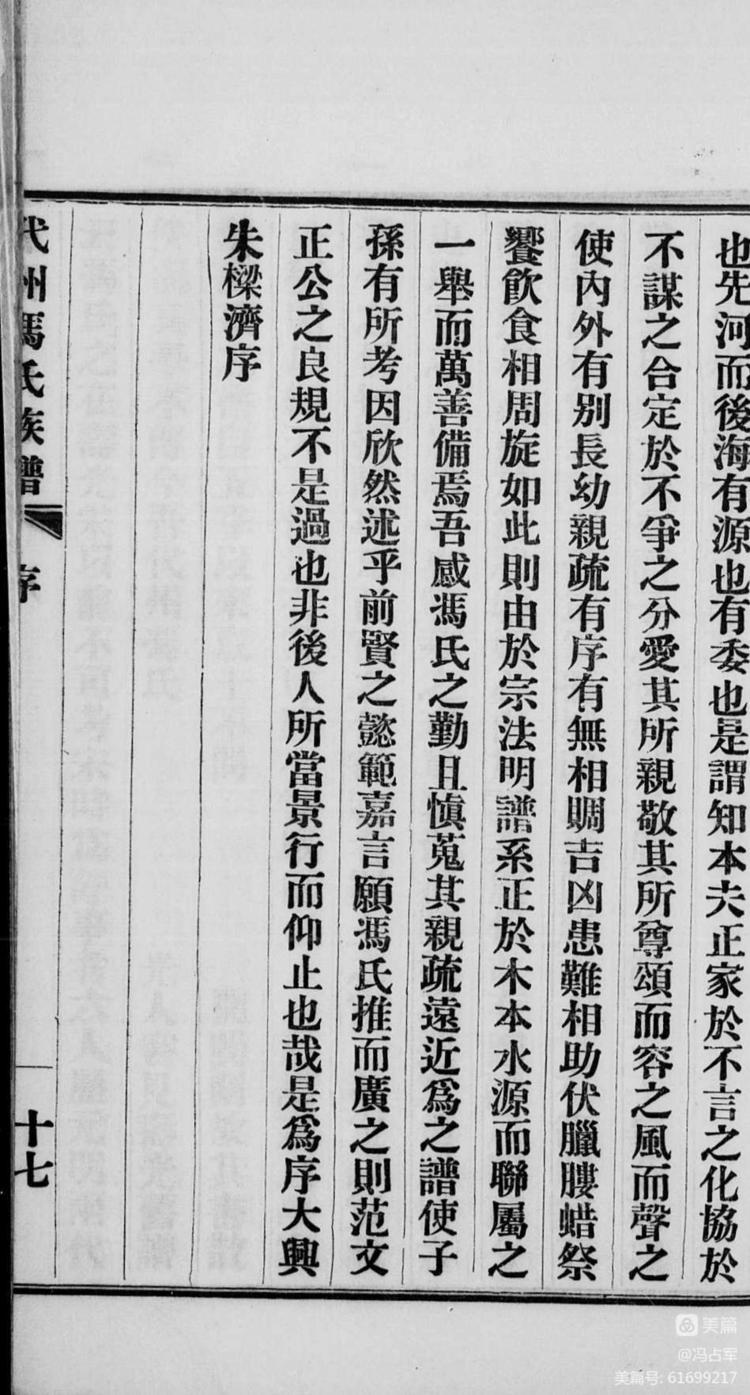 也先河而後海有源也有委也是謂知本夫正家於不言之化協於
不謀之合定於不爭之分愛其所親敬其所尊頌而容之風而聲之
使內外有别長幼親疏有序有無相賙吉凶患難相助伏臘膢蜡祭
饗飲食相周旋如此則由於宗法明譜系正於木本水源而聯屬之
一舉而萬善備焉吾感馮氏之勤且慎蒐其親疏遠近爲之譜使子
孫有所考因欣然述乎前賢之懿範嘉言願馮氏推而廣之則范文
正公之良規不是過也非後人所當景行而仰止也哉是爲序大興
朱樑濟序
代州馮氏族譜 序 十七
美篇
@冯占军
美篇号: 61699217